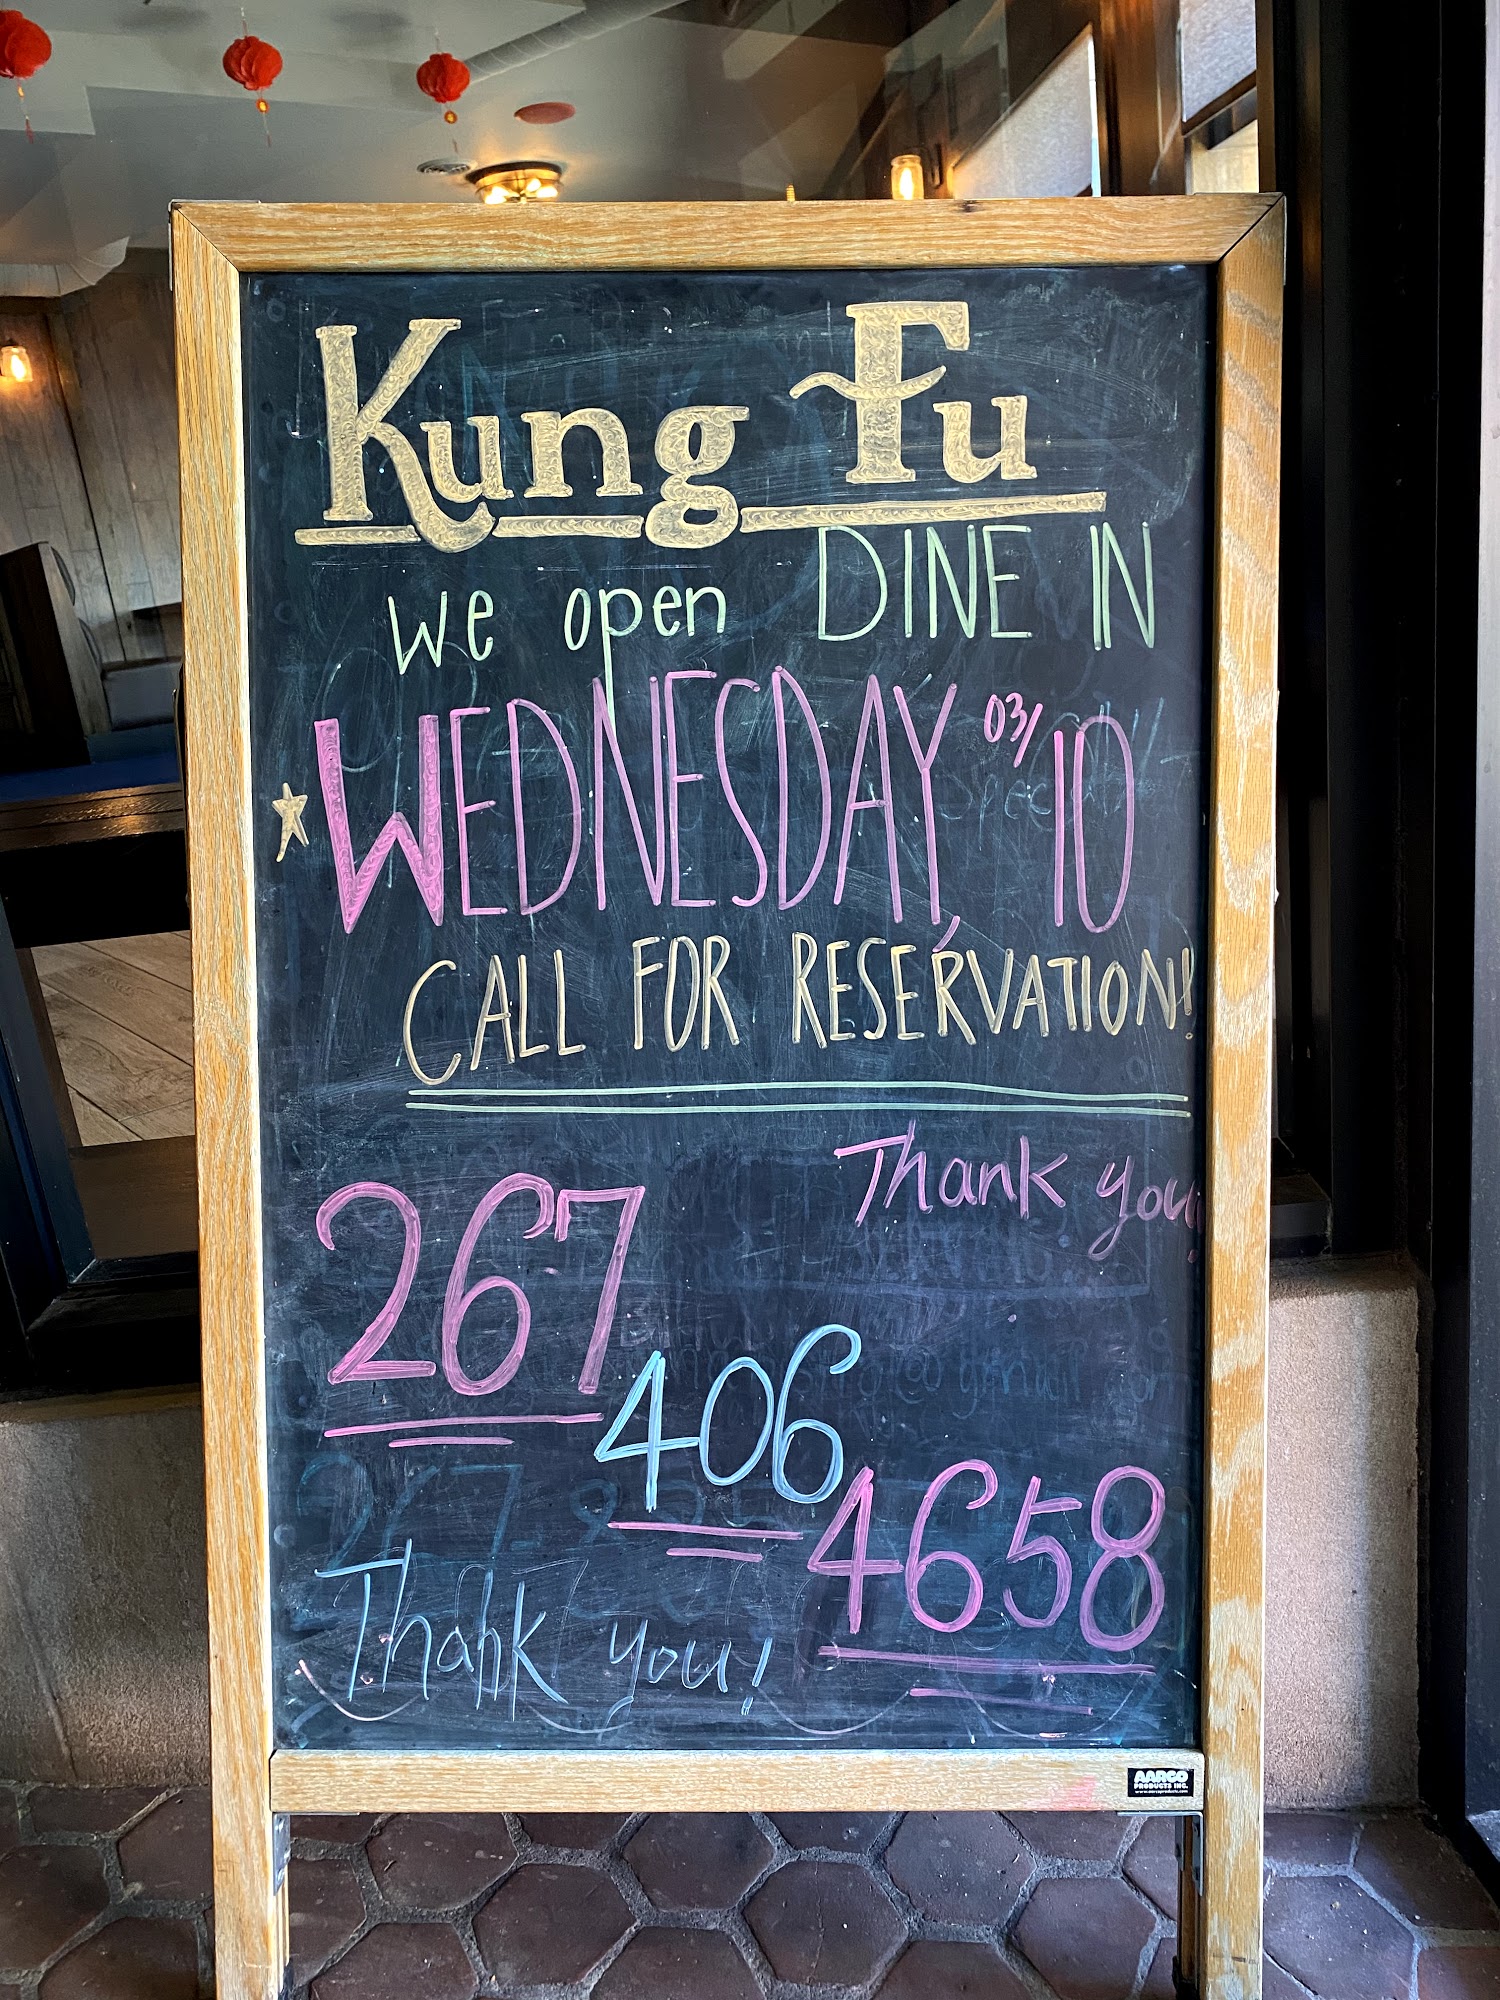 Kung Fu
We open DINE IN
WEDNESDAY, 03/10
CALL FOR RESERVATION!
Thank you!
267
406
4658
Thank you!
AARCO
PRODUCTS INC.